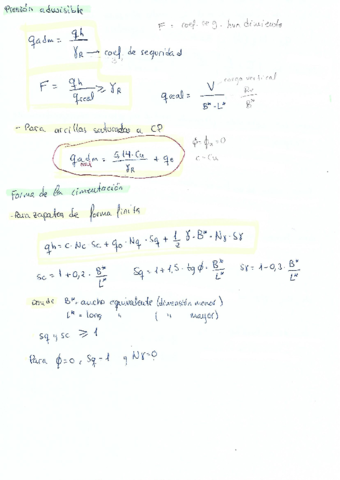 Presión admisible
q adm = qh / γR → coef. de seguridad
F = coef. seg. hundimiento
F = qh / qreal ≥ γR
qreal = V / B*·L*
carga vertical
- Para arcillas saturadas a CP
φ=0
c=Cu
q adm = 5,14·Cu / γR + qo
Forma de la cimentación
- Para zapatas de forma finita
qh = c·Nc·Sc + qo·Nq·Sq + 1/2 γ·B*·Nγ·Sγ
Sc = 1+0,2·B*/L* Sq = 1+1,5·tgφ·B*/L* Sγ = 1-0,3·B*/L*
donde B* = ancho equivalente (dimensión menor)
L* = long " ( " mayor)
Sq y Sc ≥ 1
Para φ=0, Sq=1 y Nγ=0